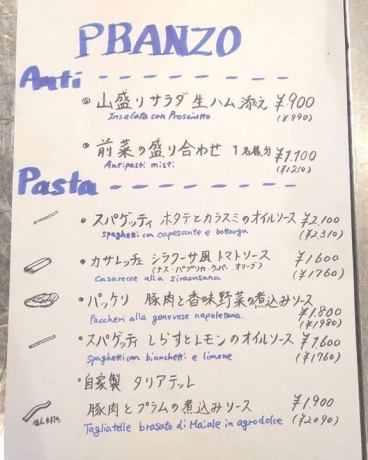 PRANZO
Anti
山盛りサラダ 生ハム添え ¥900
Insalata con Prosciutto (¥990)
前菜の盛り合わせ 1名様分 ¥1,100
Antipasti misti (¥1210)
Pasta
・スパゲッティ ホタテとカラスミのオイルソース ¥2,100
Spaghetti con capesante e bottarga (¥2,310)
・カサレッチェ シラクーサ風 トマトソース ¥1600
(ナス・パプリカ・ケッパー オリーブ)
Casarecce alla siracusana (¥1760)
・パッケリ 豚肉と香味野菜の煮込みソース
Paccheri alla genovese napoletana. ¥1,800
(¥1980)
・スパゲッティ しらすとレモンのオイルソース ¥1,600
Spaghetti con bianchetti e limone (¥1760)
・自家製 タリアテッレ
豚肉とプラムの煮込みソース ¥1,900
Tagliatelle brasato di Maiale in agrodolce (¥2,090)